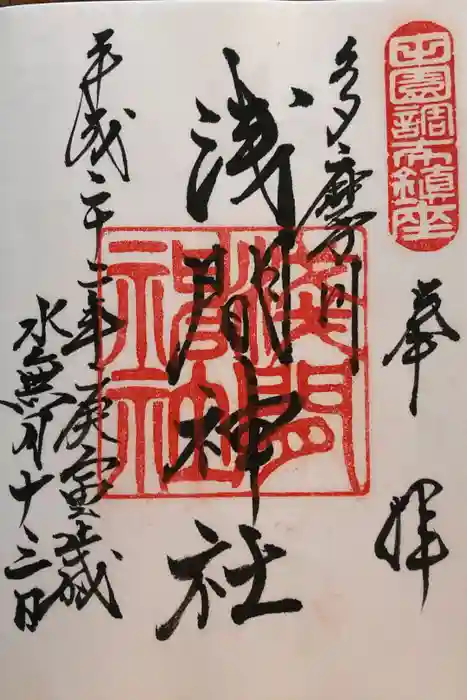 田園調布鎮座
奉拝
多摩川
浅間神社
浅間神社
平成二十二年庚寅歳
水無月十三日